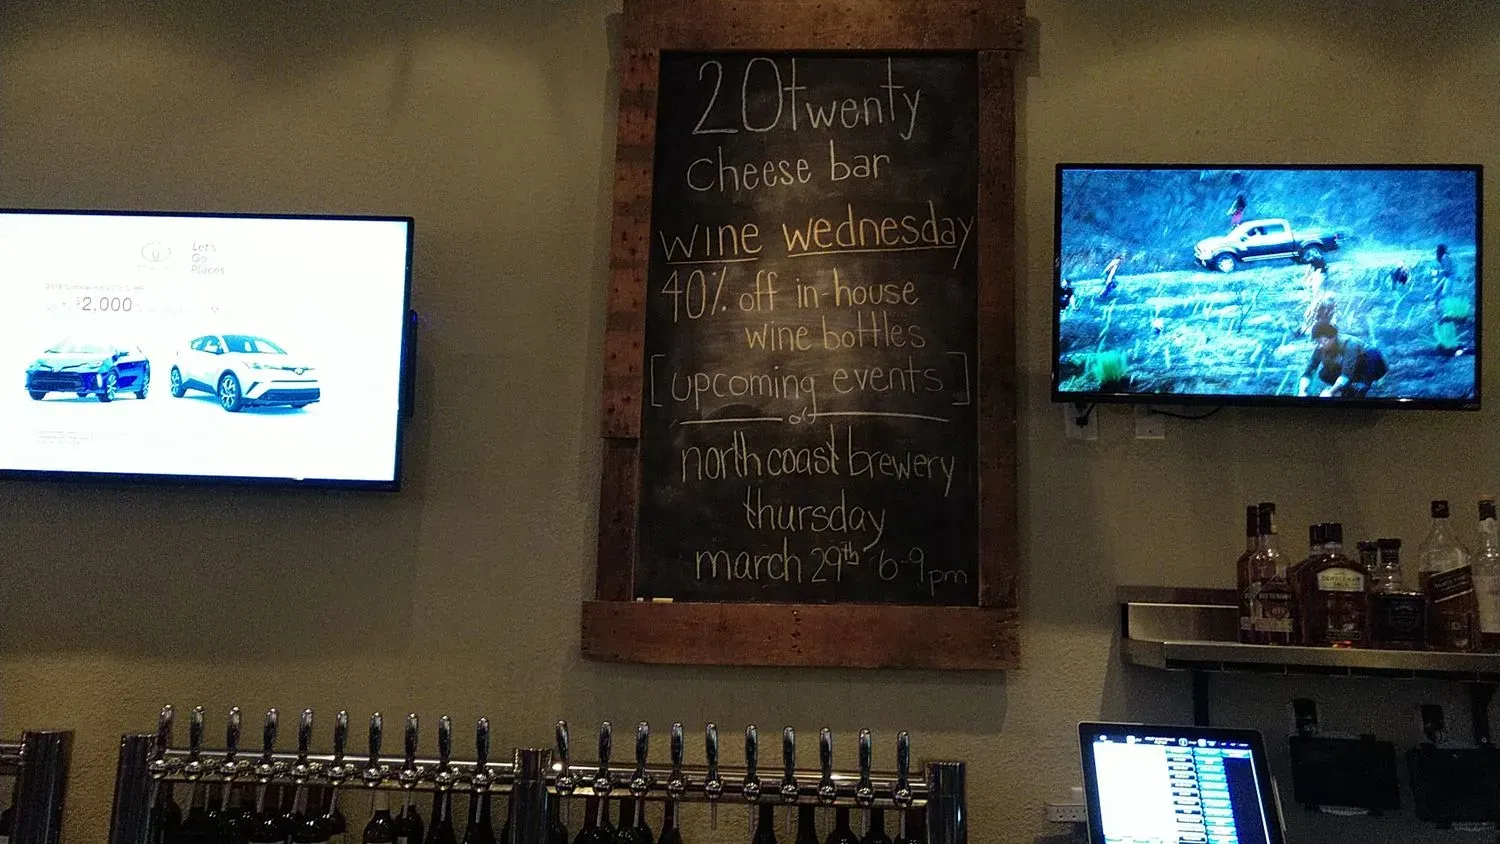 20twenty
cheese bar
wine wednesday
40% off in-house
wine bottles
[upcoming events]
north coast brewery
thursday
march 29th 6-9pm
Let's
Go
Places
$2,000